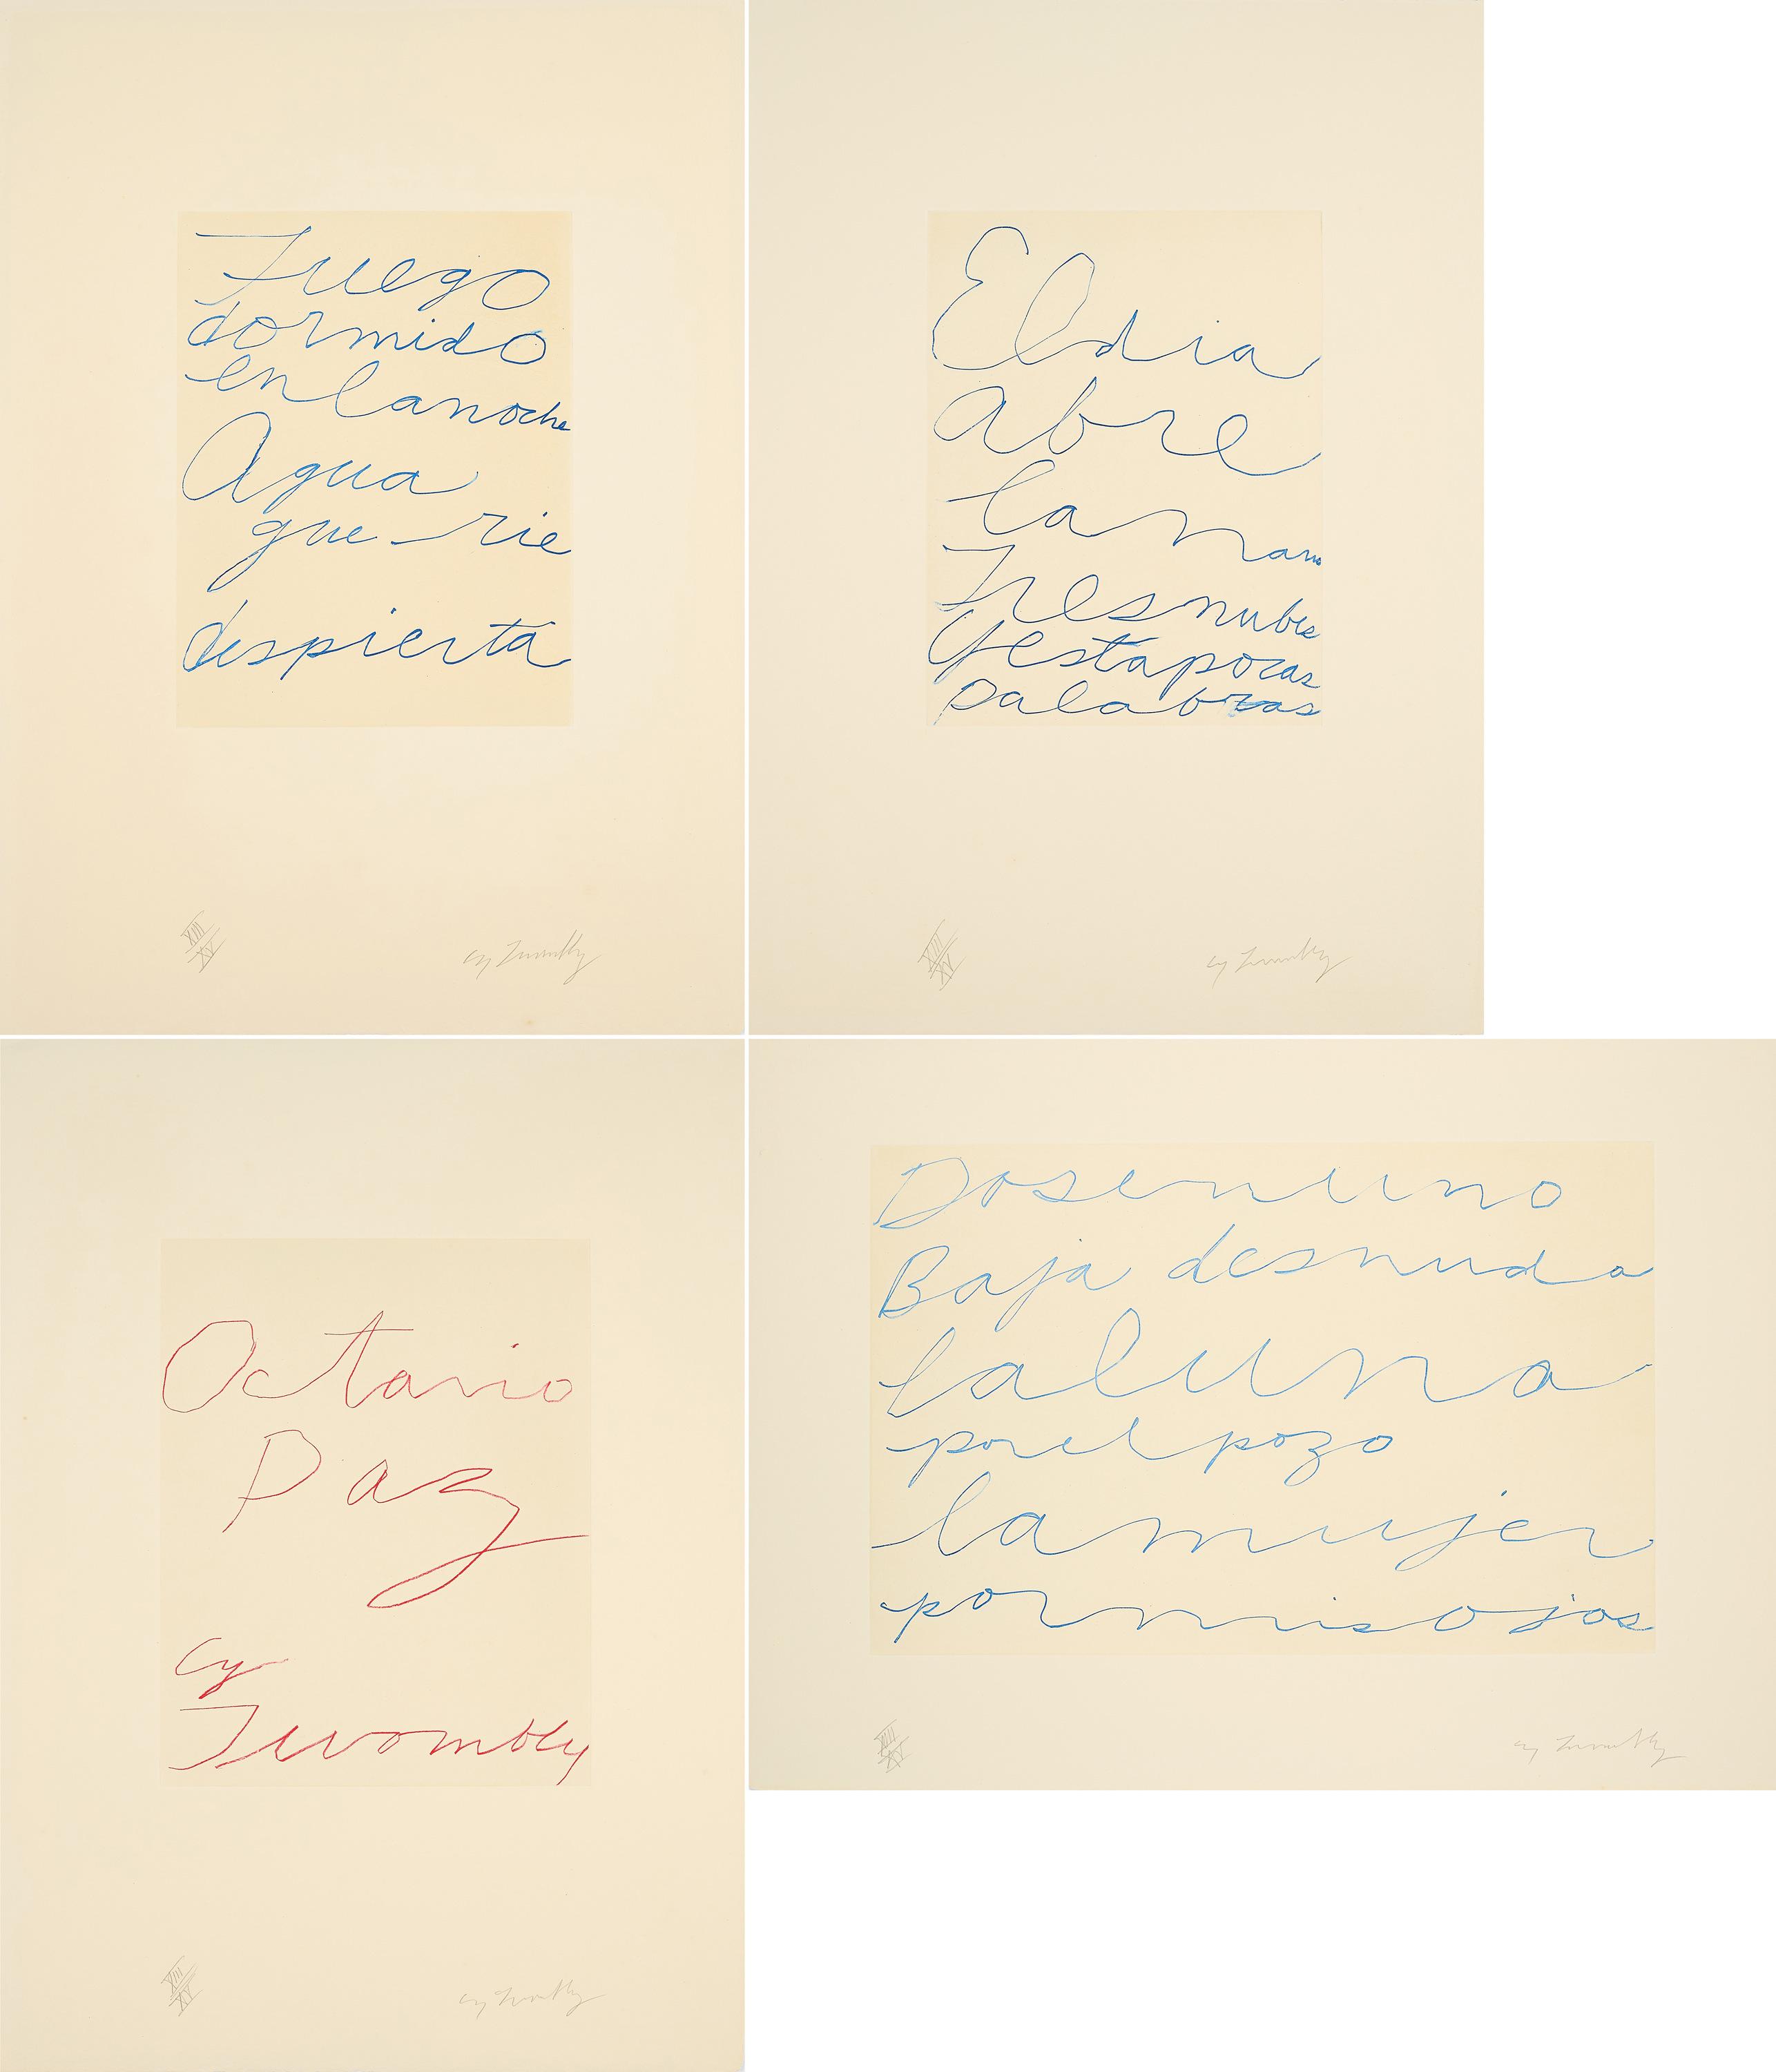 Fuego
dormido
en lanoche
Agua
que rie
despierta
XIII/XV
Cy Twombly
El dia
abre
la mano
Tres nubes
y estapocas
palabras
XIII/XV
Cy Twombly
Octavio
Paz
Cy
Twombly
XIII/XV
Cy Twombly
Dos en uno
Baja desnuda
la luna
por el pozo
la mujer
por mis ojos
XIII/XV
Cy Twombly